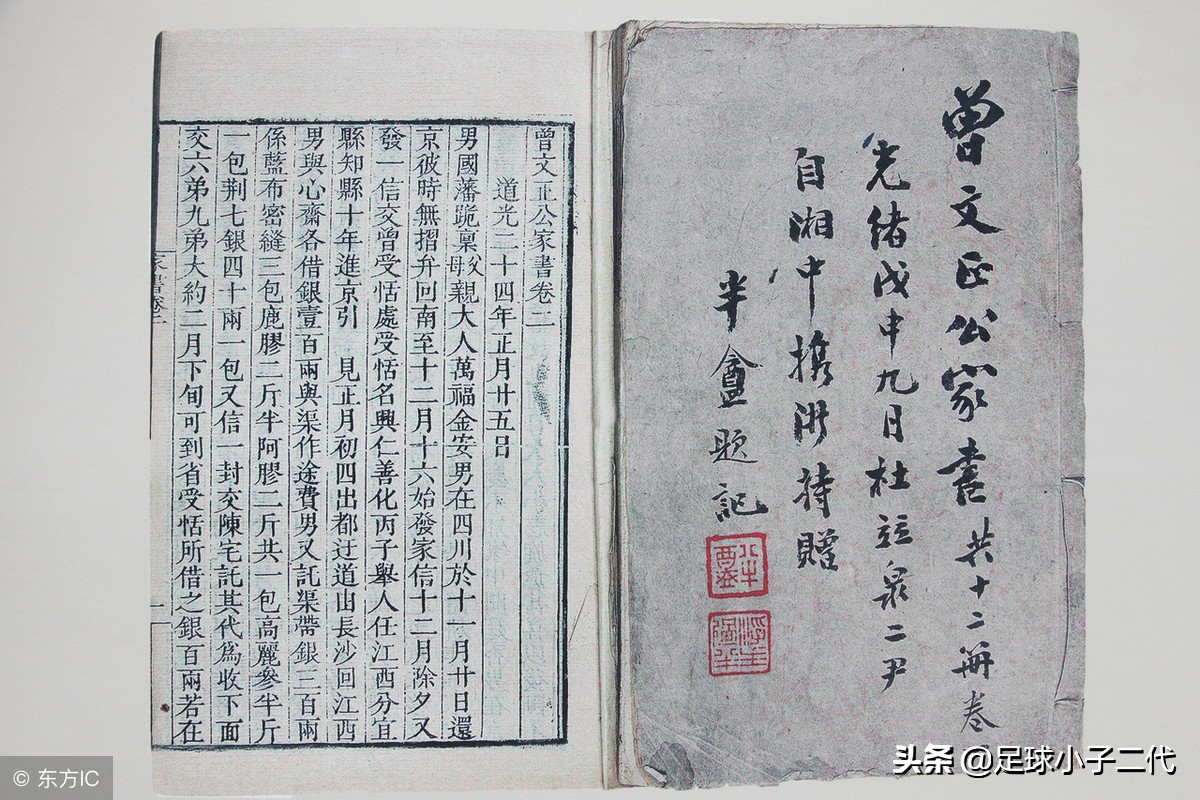 曾文正公家書 共十二冊 卷
光緒戊申九月杜竝泉二尹
自湘中攜 持贈
半盦題記
曾文正公家書卷二
道光二十四年正月廿五日
男國藩跪稟父母親大人萬福金安男在四川於十一月廿日還
京彼時無摺弁回南至十二月十六始發家信十二月除夕又
發一信交曾受恬處受恬名興仁善化丙子舉人任江西分宜
縣知縣十年進京引 見正月初四出都迂道由長沙回江西
男與心齋各借銀壹百兩與渠作途費男又託渠帶銀三百兩
係藍布密縫三包鹿膠二斤半阿膠二斤共一包高麗參半斤
一包荆七銀四十兩一包又信一封交陳宅託其代為收下面
交六弟九弟大約二月下旬可到省受恬所借之銀百兩若在
家書卷二
一
© 东方IC
头条 @足球小子二代